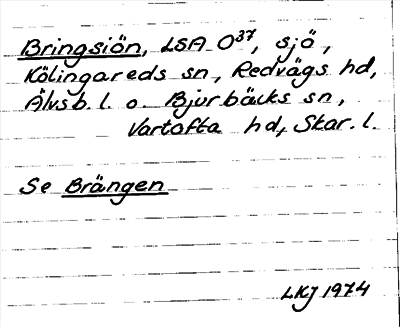 Bringsiön, LSA O37, sjö,
Kölingareds sn, Redvägs hd,
Älvsb. l. o. Bjurbäcks sn,
Vartofta hd, Skar. l.
Se Brängen
LKJ 1974